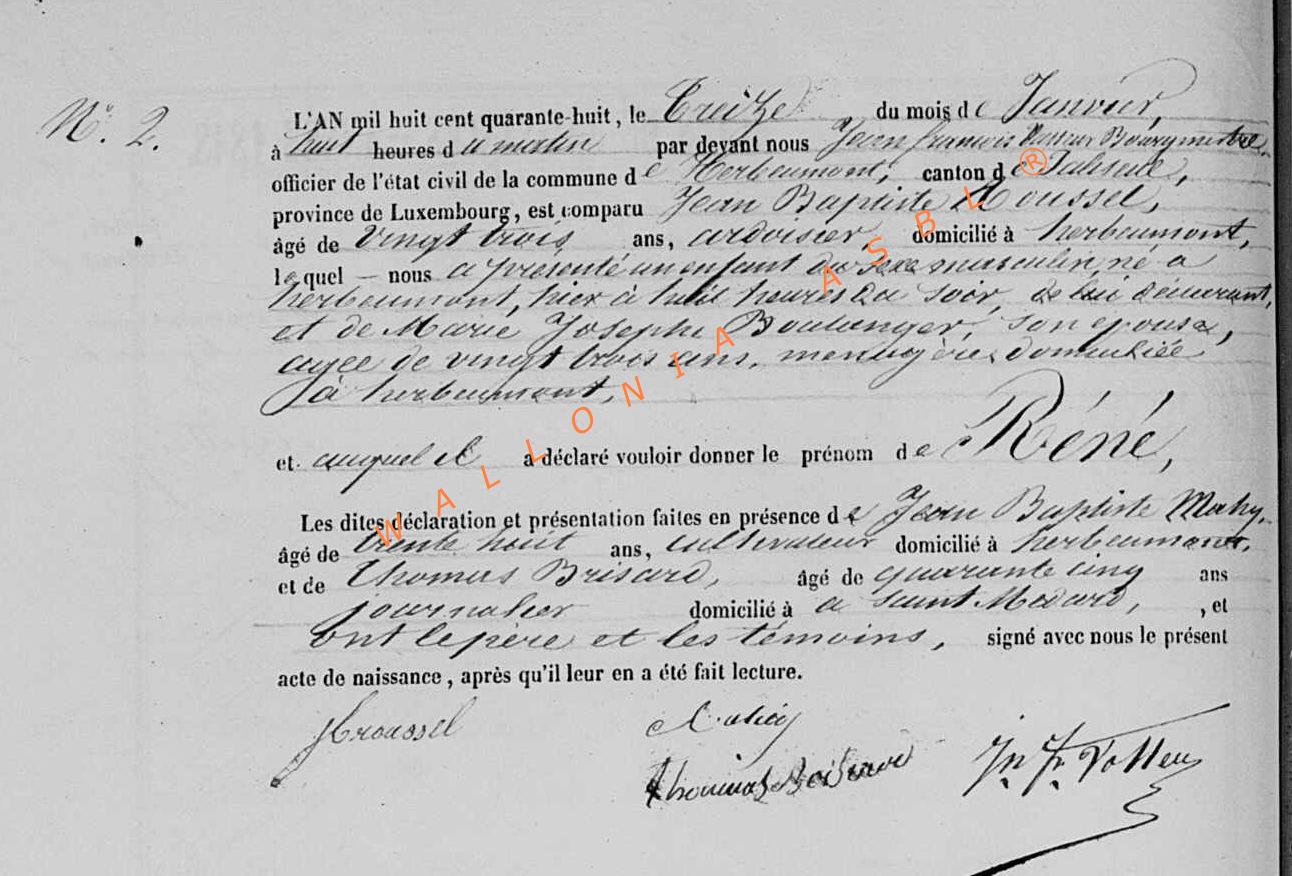 N°. 2.
L'AN mil huit cent quarante-huit, le Treize du mois de Janvier,
à huit heures du matin par devant nous Jean françois Bourgmestre
officier de l'état civil de la commune de Herbeumont, canton de Paliseul,
province de Luxembourg, est comparu Jean Baptiste Roussel,
âgé de vingt trois ans, ardoisier, domicilié à herbeumont,
lequel — nous a présenté un enfant du sexe masculin, né a
herbeumont, hier à huit heures du soir, de lui déclarant,
et de Marie Josephe Boulanger, son epouse,
agée de vingt trois ans, menagère domiciliée
à herbeumont,
et auquel il a déclaré vouloir donner le prénom de Réné,
Les dites déclaration et présentation faites en présence de Jean Baptiste Mahy,
âgé de trente huit ans, cultivateur domicilié à herbeumont,
et de Thomas Brisard, âgé de quarante cinq ans
journalier domicilié à a saint Medard, , et
ont le père et les témoins, signé avec nous le présent
acte de naissance, après qu'il leur en a été fait lecture.
JBroussel
Thomas Brisard
WALLONIA ASBL ®